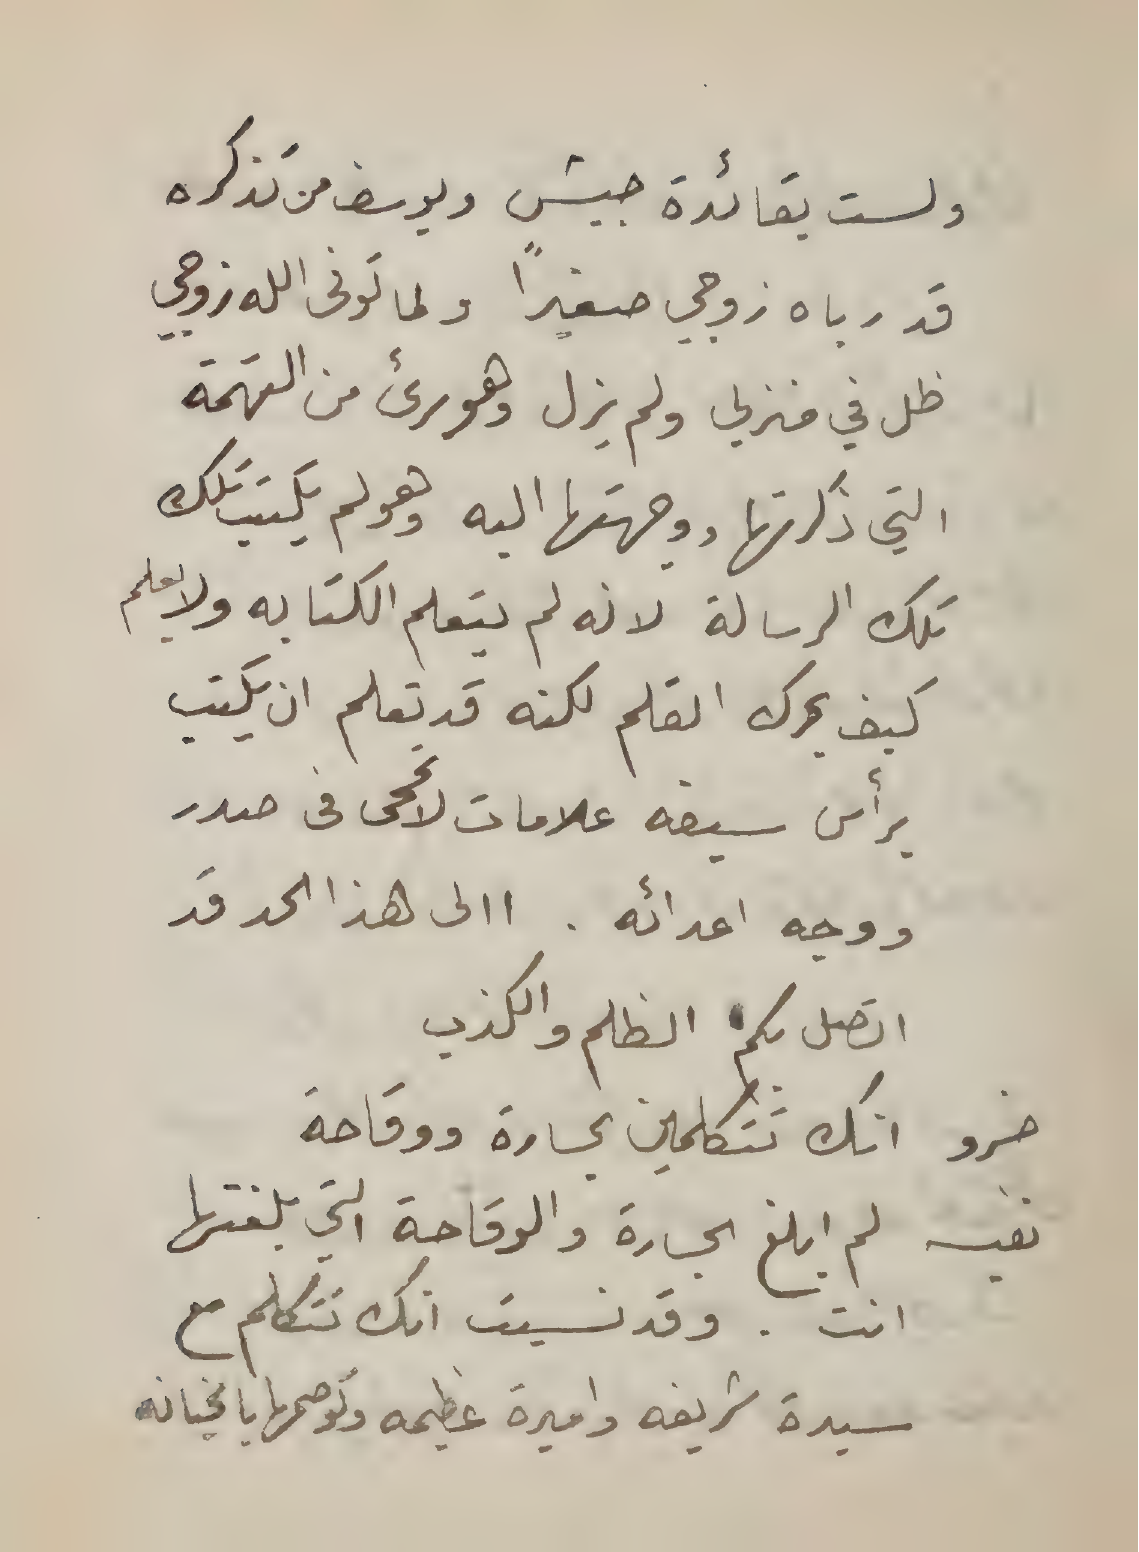 ولست بقائدة جيش ويوسف من تذكره
قد رباه زوجي صغيرًا ولما توفى الله زوجي
ظل في منزلي ولم يزل وهو برئ من التهمة
التي ذكرتها ووجهتها اليه وهو لم يكتب تلك
تلك الرسالة لانه لم يتعلم الكتابه ولا يعلم
كيف يحرك القلم لكنه قد تعلم ان يكتب
برأس سيفه علامات لا تمحى فى صدر
ووجه اعدائه . االى هذا الحد قد
اتصل بكم الظلم والكذب
خسرو انك تتكلمين بجسارة ووقاحة
نفيسه لم ابلغ الجسارة والوقاحة التي بلغتها
انت . وقد نسيت انك تتكلم مع
سيدة شريفه واميرة عظيمه وتوصمها بالخيانه